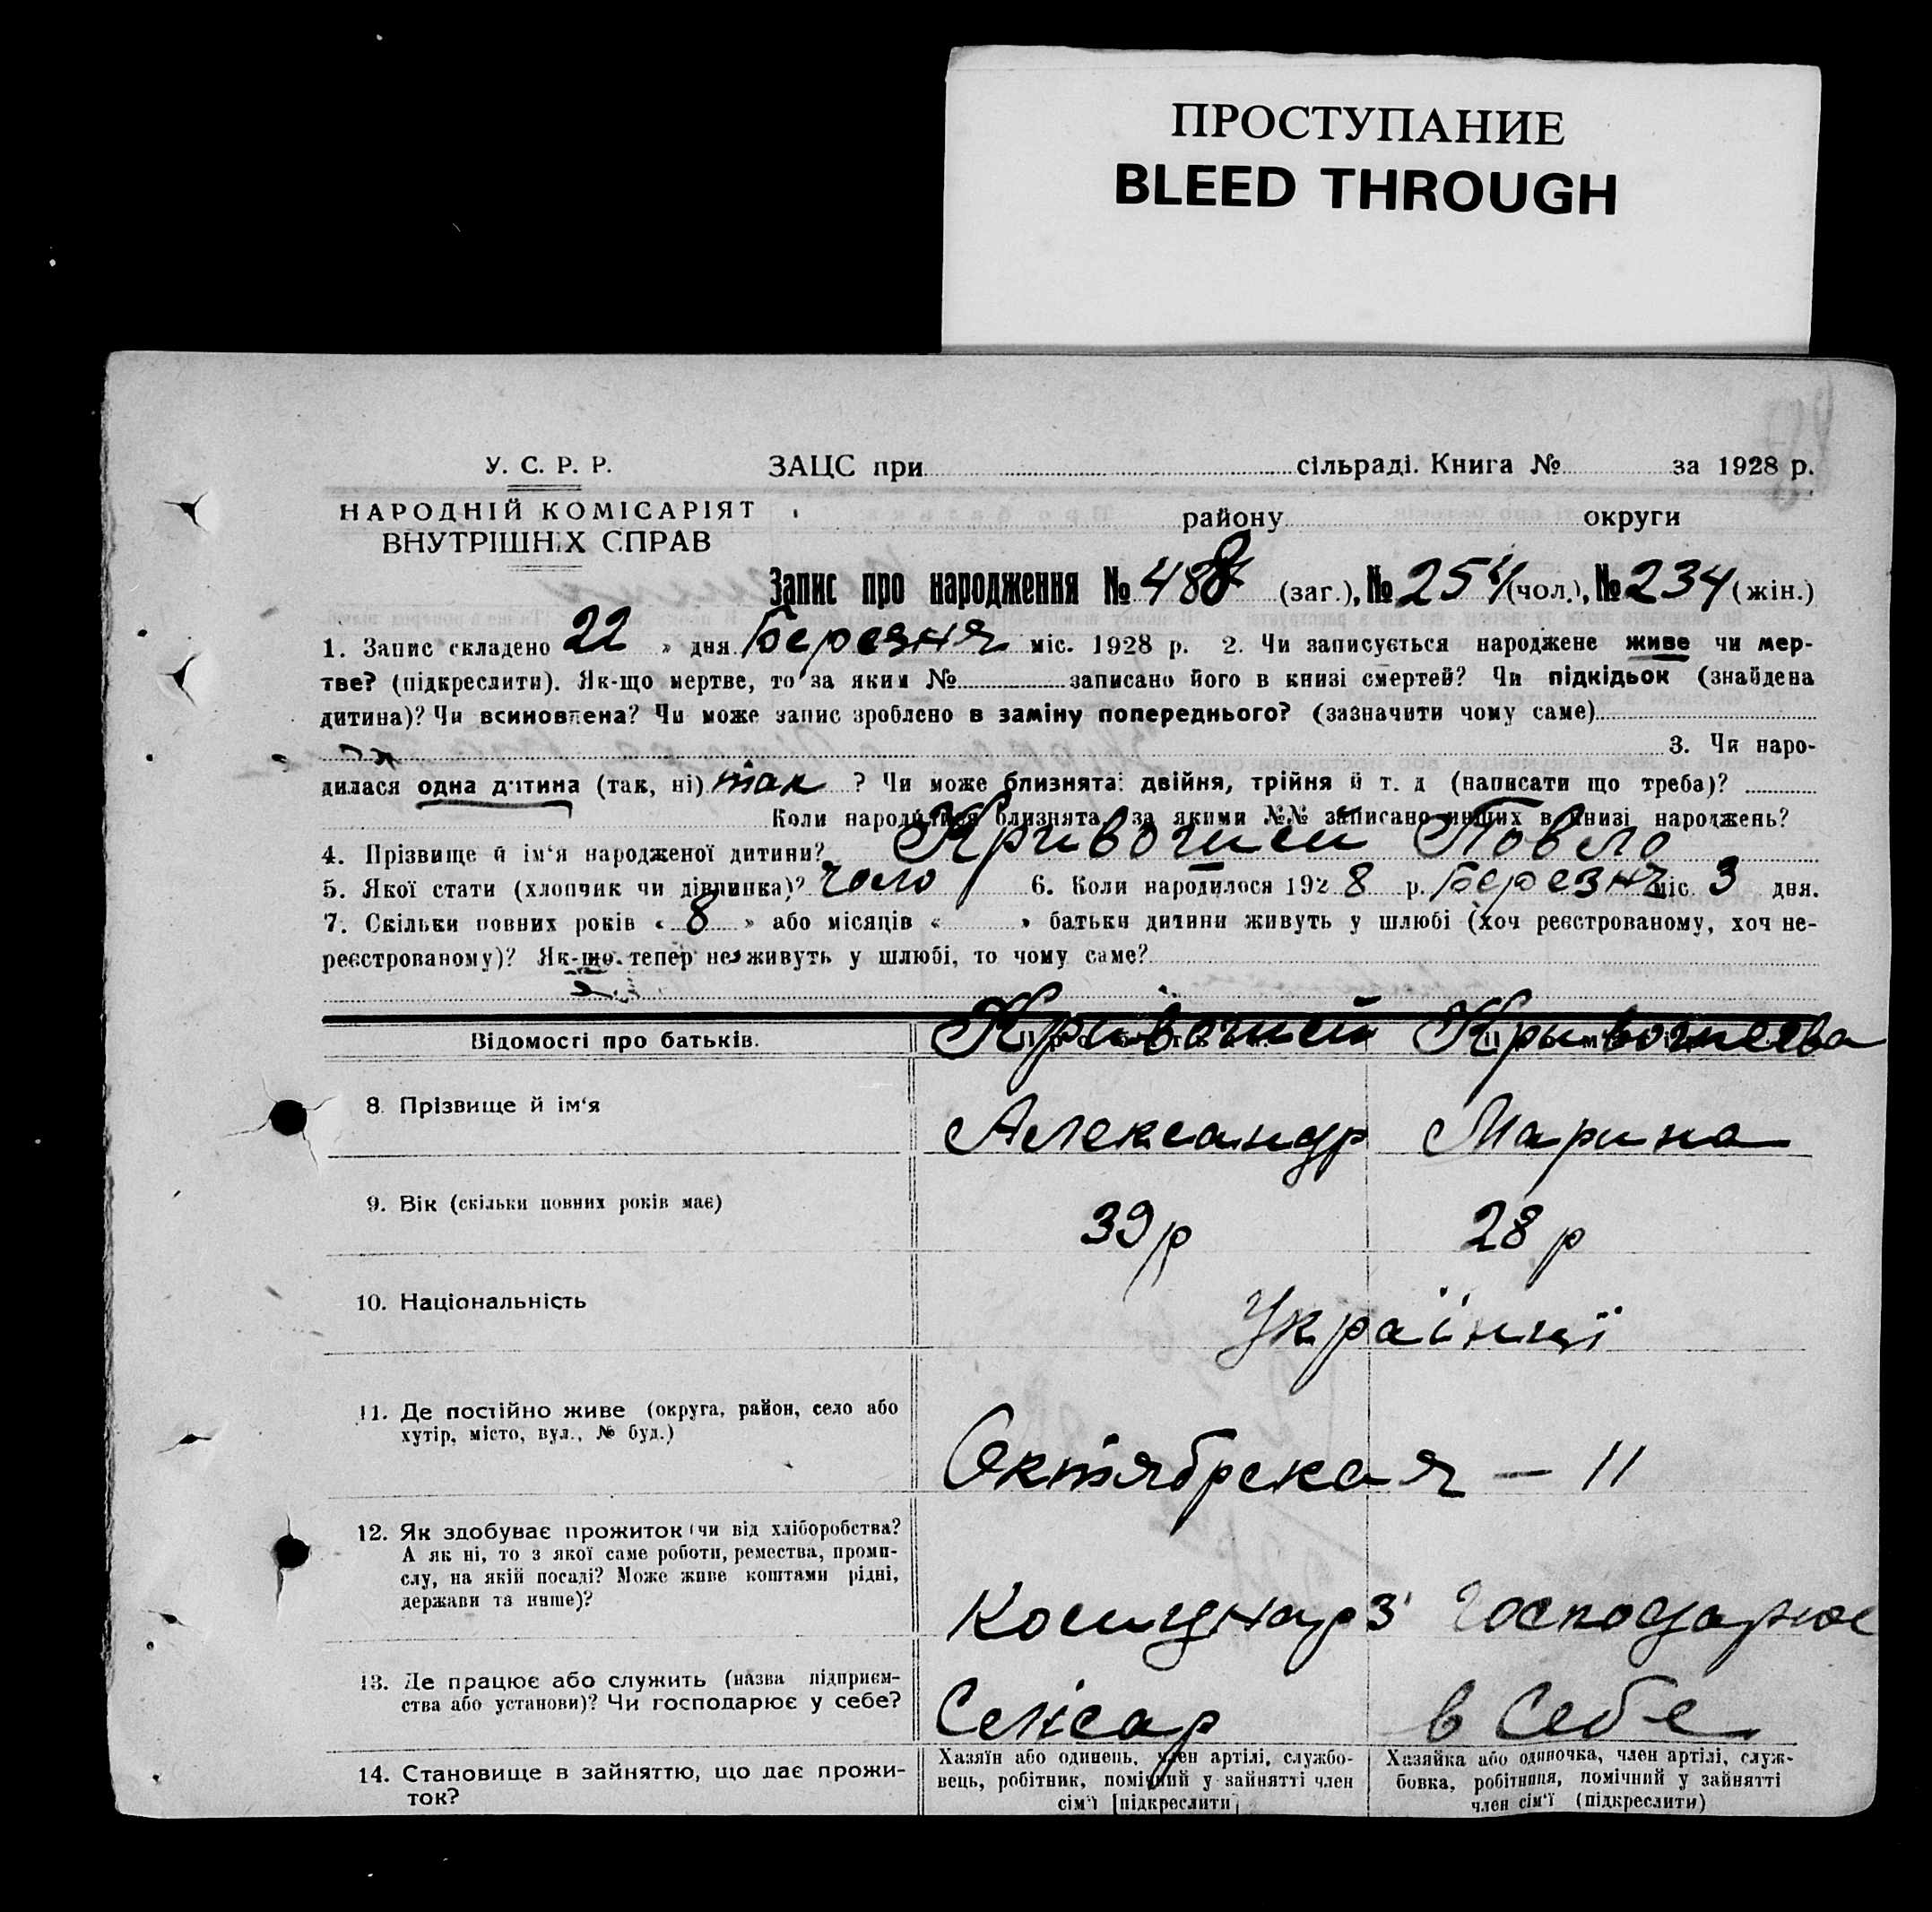 ПРОСТУПАНИЕ
BLEED THROUGH
У. С. Р. Р.
НАРОДНІЙ КОМІСАРІЯТ
ВНУТРІШНІХ СПРАВ
ЗАЦС при сільраді. Книга № за 1928 р.
району округи
Запис про народження № 488 (заг.), № 254 (чол.), № 234 (жін.)
1. Запис складено 22 » дня Березня міс. 1928 р. 2. Чи записується народжене живе чи мер-
тве? (підкреслити). Як-що мертве, то за яким № записано його в книзі смертей? Чи підкідьок (знайдена
дитина)? Чи всиновлена? Чи може запис зроблено в заміну попереднього? (зазначити чому саме)
3. Чи наро-
дилася одна дитина (так, ні) так ? Чи може близнята: двійня, трійня й т. д (написати що треба)?
Коли народилися близнята, за якими №№ записано инших в книзі народжень?
4. Прізвище й ім'я народженої дитини? Кривошей Повло
5. Якої стати (хлопчик чи дівчинка)? чоло 6. Коли народилося 1928 р. Березня міс. 3 дня.
7. Скільки повних років « 8 » або місяців « » батьки дитини живуть у шлюбі (хоч реєстрованому, хоч не-
реєстрованому)? Як-що тепер не живуть у шлюбі, то чому саме?
Відомості про батьків. Кривошей Крывошеева
8. Прізвище й ім'я Александр Марина
9. Вік (скільки повних років має) 39 р 28 р
10. Національність Українці
11. Де постійно живе (округа, район, село або
хутір, місто, вул., № буд.)
Октябрская — 11
12. Як здобуває прожиток (чи від хліборобства?
А як ні, то з якої саме роботи, ремества, проми-
слу, на якій посаді? Може живе коштами рідні,
держави та инше)?
13. Де працює або служить (назва підприєм-
ства або установи)? Чи господарює у себе?
в Себе
14. Становище в зайняттю, що дає прожи-
ток?
Хазяїн або одинець, член артілі, службо-
вець, робітник, помічний у зайнятті член
сім'ї [підкреслити]
Хазяйка або одиночка, член артілі, служ-
бовка, робітниця, помічний у зайнятті
член сім'ї (підкреслити)